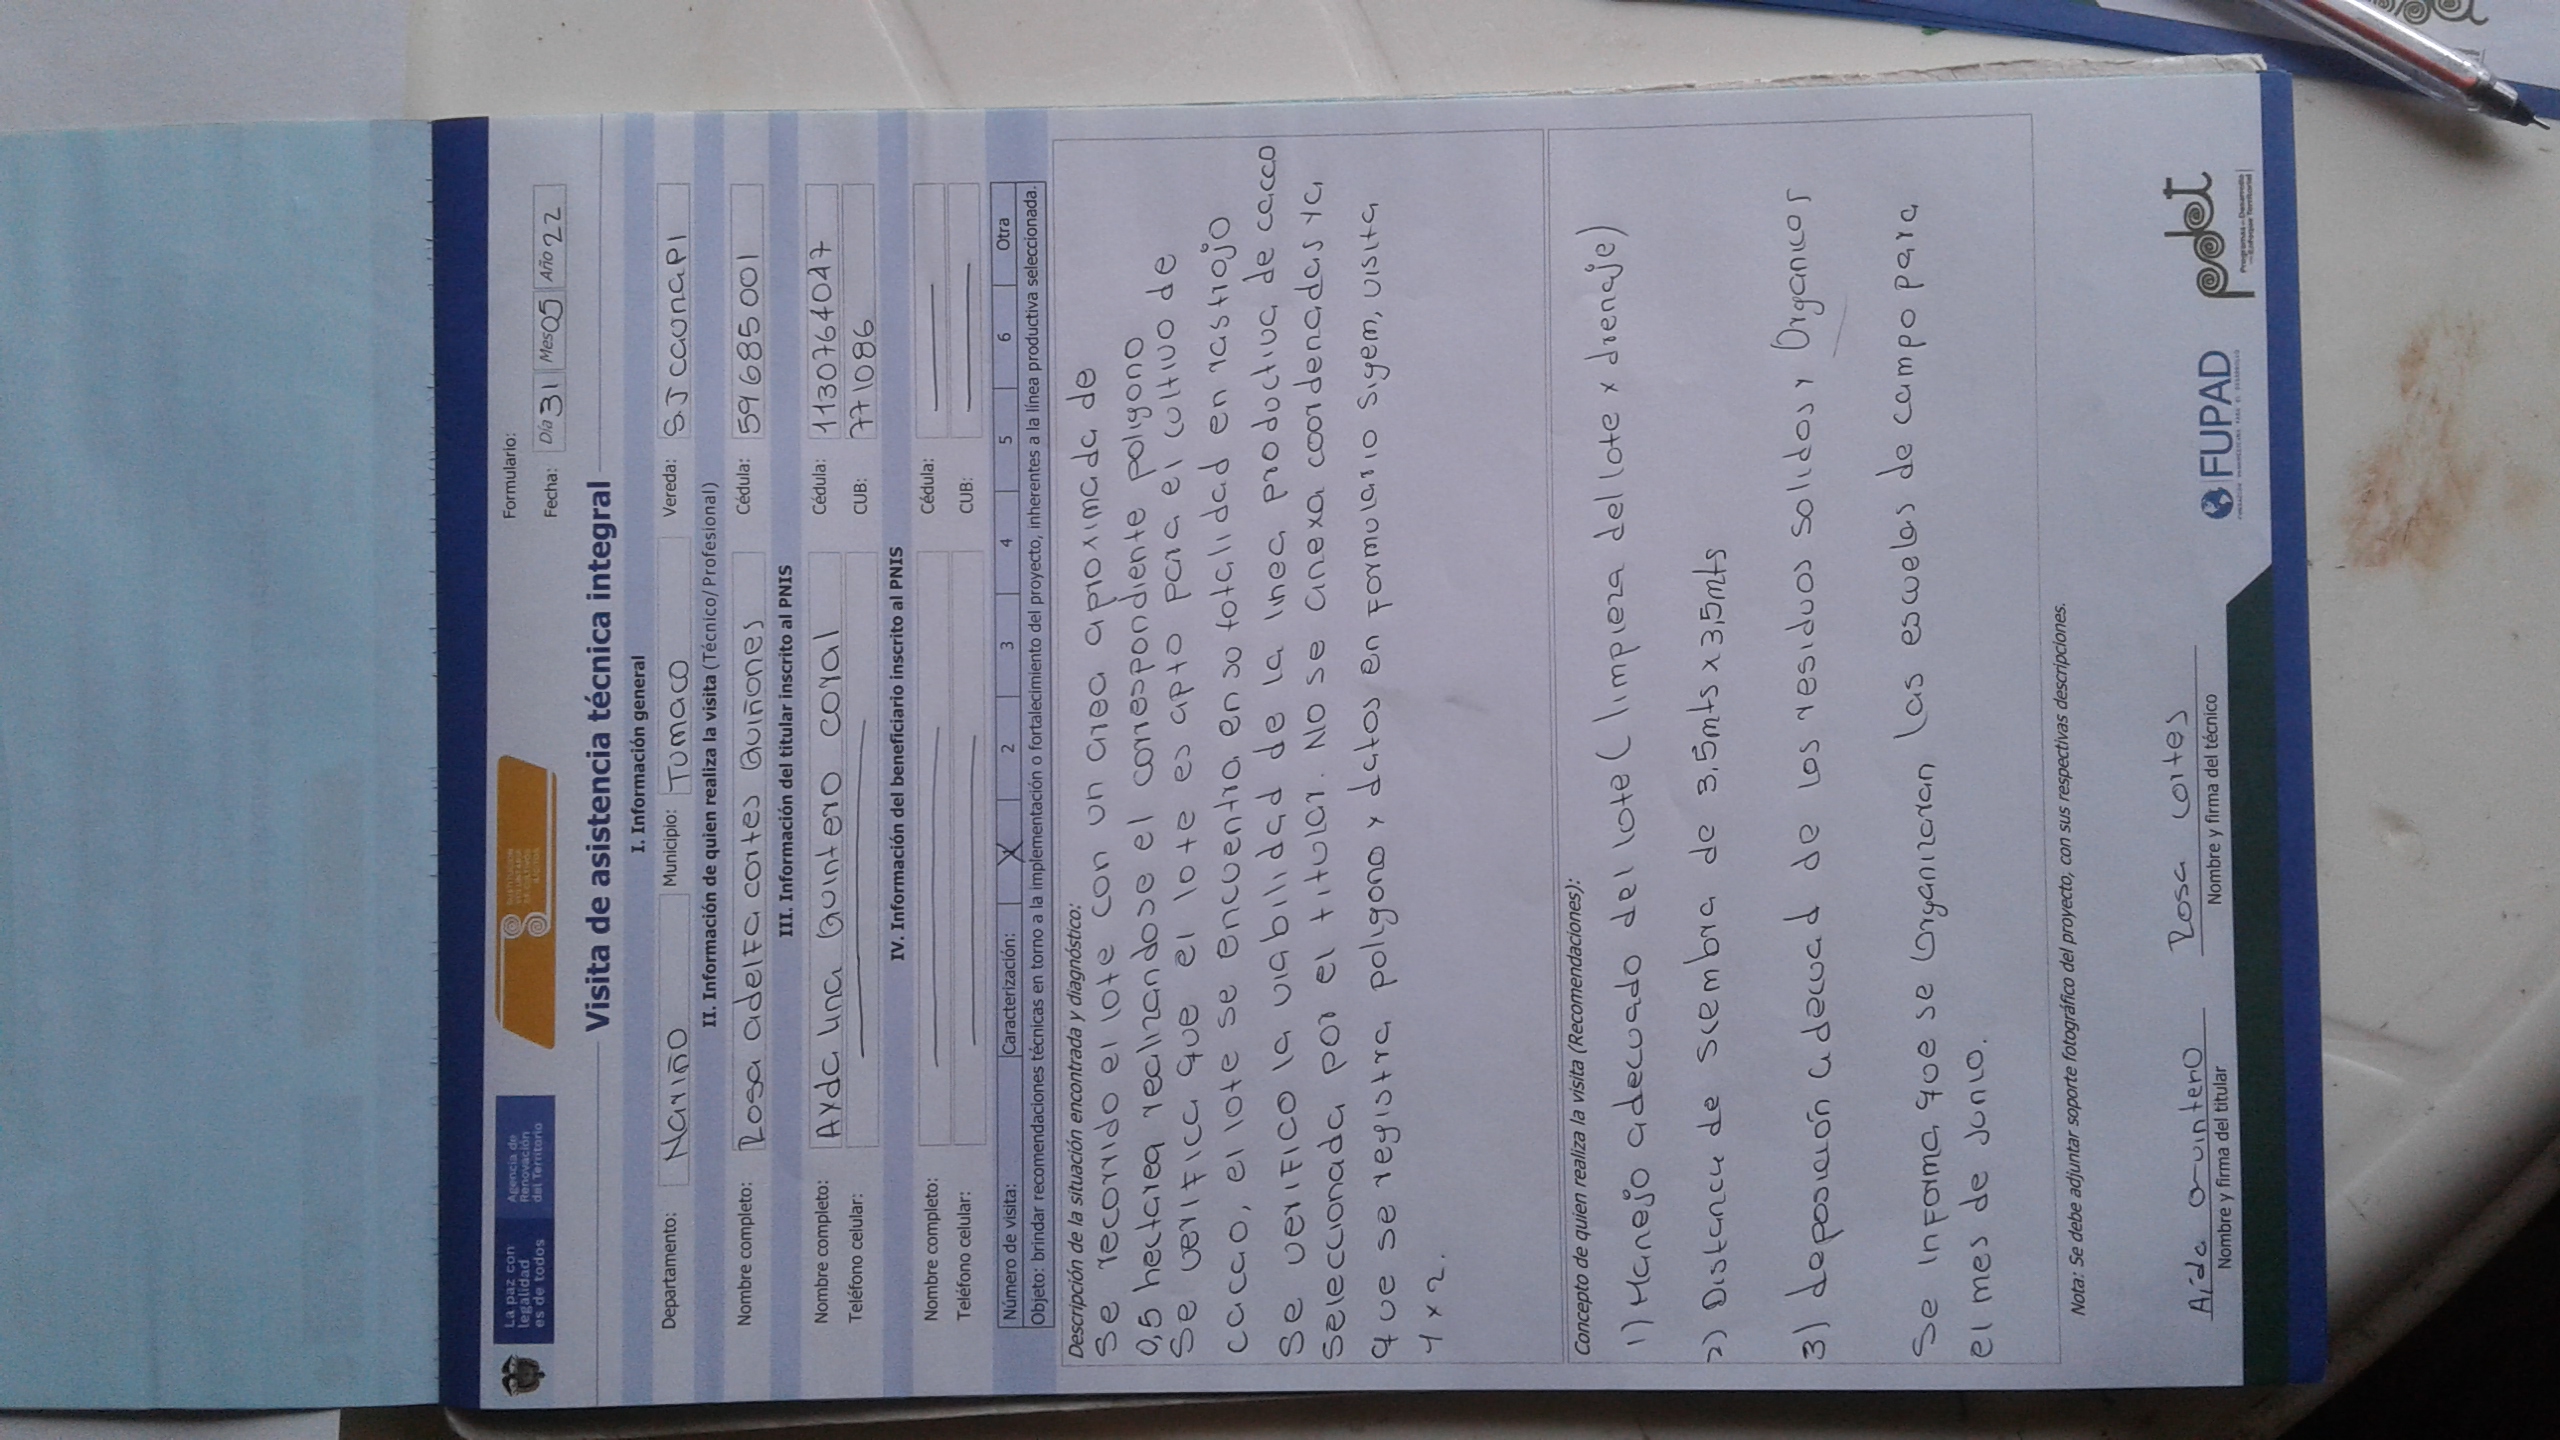 La paz con
legalidad
es de todos
Agencia de
Renovación
del Territorio
SUSTITUCIÓN
VOLUNTARIA
DE CULTIVOS
ILÍCITOS
Formulario:
Fecha: Día 31 Mes 05 Año 22
Visita de asistencia técnica integral
I. Información general
Departamento: Nariño Municipio: Tumaco Vereda: S.J caunapi
II. Información de quien realiza la visita (Técnico/ Profesional)
Nombre completo: Rosa adelfa cortes Quiñones Cédula: 59685001
III. Información del titular inscrito al PNIS
Nombre completo: Ayda lina Quintero coral Cédula: 1130764047
Teléfono celular: CUB: 771086
IV. Información del beneficiario inscrito al PNIS
Nombre completo: Cédula:
Teléfono celular: CUB:
Número de visita: Caracterización: X 2 3 4 5 6 Otra
Objeto: brindar recomendaciones técnicas en torno a la implementación o fortalecimiento del proyecto, inherentes a la línea productiva seleccionada.
Descripción de la situación encontrada y diagnóstico:
Se recorrido el lote con un area aproximada de
0,5 hectarea realizandose el correspondiente poligono
Se verifica que el lote es apto para el cultivo de
cacao, el lote se encuentra en so totalidad en rastrojo
Se verifico la viabilidad de la linea productiva de cacao
Seleccionada por el titular. No se anexa coordenadas ya
que se registra poligono y datos en formulario sigem, visita
1 x 2.
Concepto de quien realiza la visita (Recomendaciones):
1) Manejo adecuado del lote ( limpieza del lote y drenaje)
2) Distancia de siembra de 3,5mts x 3,5mts
3) deposición adecuad de los residuos solidos y Organicos
Se informa que se Organizaran las escuelas de campo para
el mes de Junio.
Nota: Se debe adjuntar soporte fotográfico del proyecto, con sus respectivas descripciones.
Aida Quintero Rosa cortes
Nombre y firma del titular Nombre y firma del técnico
FUPAD
pdet
Programas de Desarrollo
con Enfoque Territorial